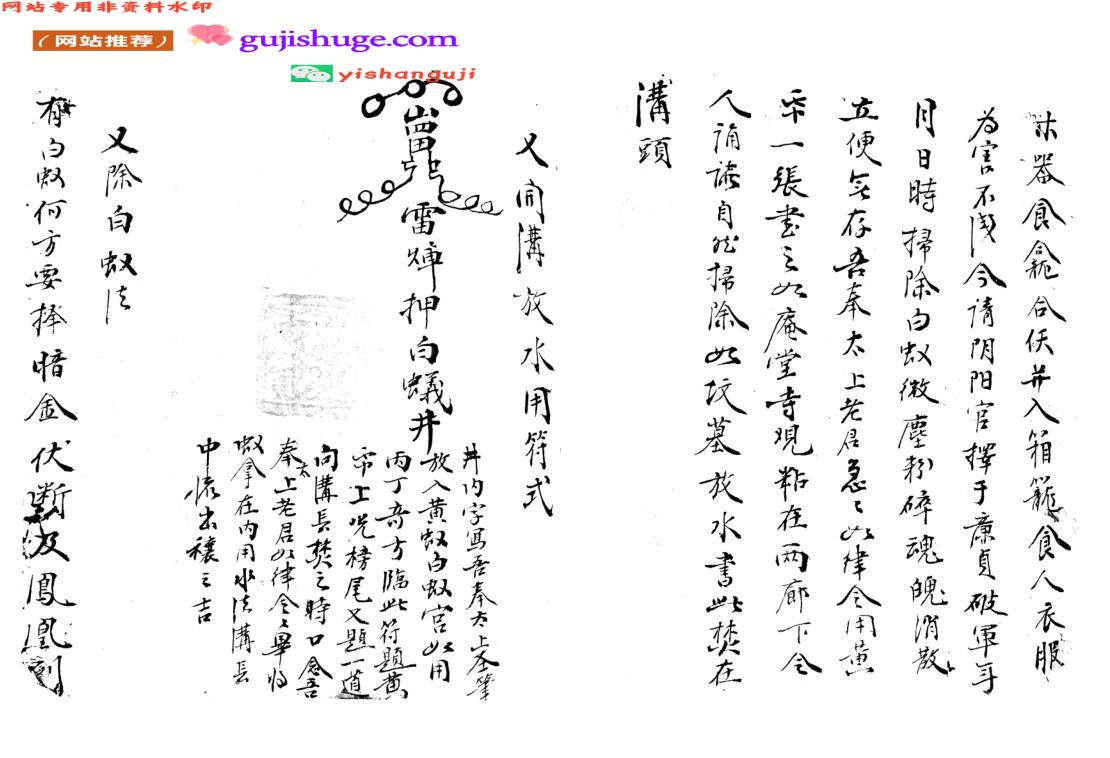 网站专用非资料水印
（网站推荐）
gujishuge.com
yishanguji
木器食龕合仸并入箱籠食人衣服
为害不浅今请阴阳官擇于廉貞破軍年
月日時掃除白蚁微塵粉碎魂魄消散
立便無存吾奉太上老君急〻如律令用黄
帋一張書之如庵堂寺观粘在两廊下令
人誦誦自然掃除如坟墓放水書此焚在
溝頭
又開溝放水用符式
雷 押白蟻井
井内字寫吾奉太上
放入黄蚁白蚁官如用
丙丁奇方臨此符題黄
帋上咒榜尾又題一道
向溝長焚之時口念吾
奉太上老君如律令〻畢将
蚁拿在内用水法溝長
中 出穰之吉
又除白蚁法
有白蚁何方要择暗金伏断及鳳凰